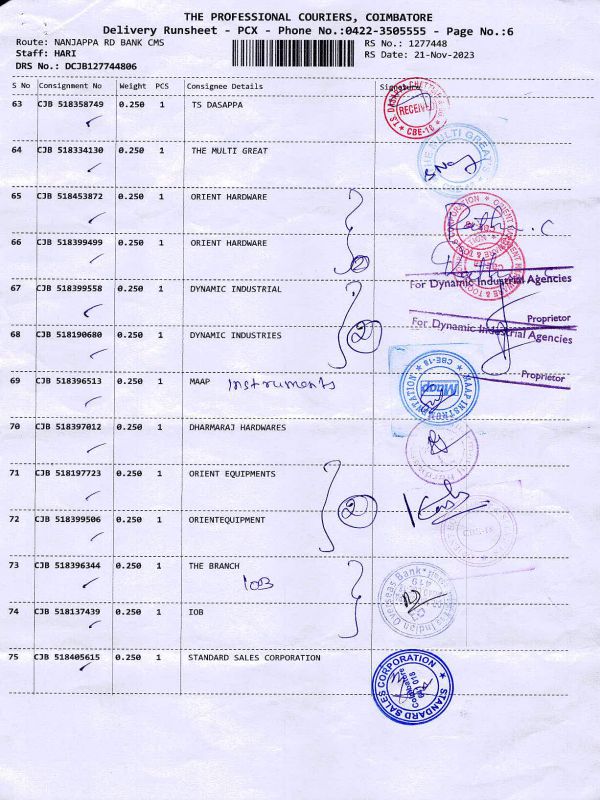 THE PROFESSIONAL COURIERS, COIMBATORE
Delivery Runsheet - PCX - Phone No.:0422-3505555 - Page No.:6
Route: NANJAPPA RD BANK CMS RS No.: 1277448
Staff: HARI RS Date: 21-Nov-2023
DRS No.: DCJB127744806
S No Consignment No Weight PCS Consignee Details Signature
63 CJB 518358749 0.250 1 TS DASAPPA
RECEIVED
CBE-18
64 CJB 518334130 0.250 1 THE MULTI GREAT
THE MULTI GREAT
65 CJB 518453872 0.250 1 ORIENT HARDWARE
66 CJB 518399499 0.250 1 ORIENT HARDWARE
67 CJB 518399558 0.250 1 DYNAMIC INDUSTRIAL
For Dynamic Industrial Agencies
Proprietor
68 CJB 518190680 0.250 1 DYNAMIC INDUSTRIES 2
For Dynamic Industrial Agencies
Proprietor
69 CJB 518396513 0.250 1 MAAP Instruments
MAAP INSTRUMENTATION CBE-18
Maap
70 CJB 518397012 0.250 1 DHARMARAJ HARDWARES
71 CJB 518197723 0.250 1 ORIENT EQUIPMENTS
72 CJB 518399506 0.250 1 ORIENTEQUIPMENT 2
73 CJB 518396344 0.250 1 THE BRANCH
IOB
Indian Overseas Bank
74 CJB 518137439 0.250 1 IOB
75 CJB 518405615 0.250 1 STANDARD SALES CORPORATION
STANDARD SALES CORPORATION
Coimbatore
641 018